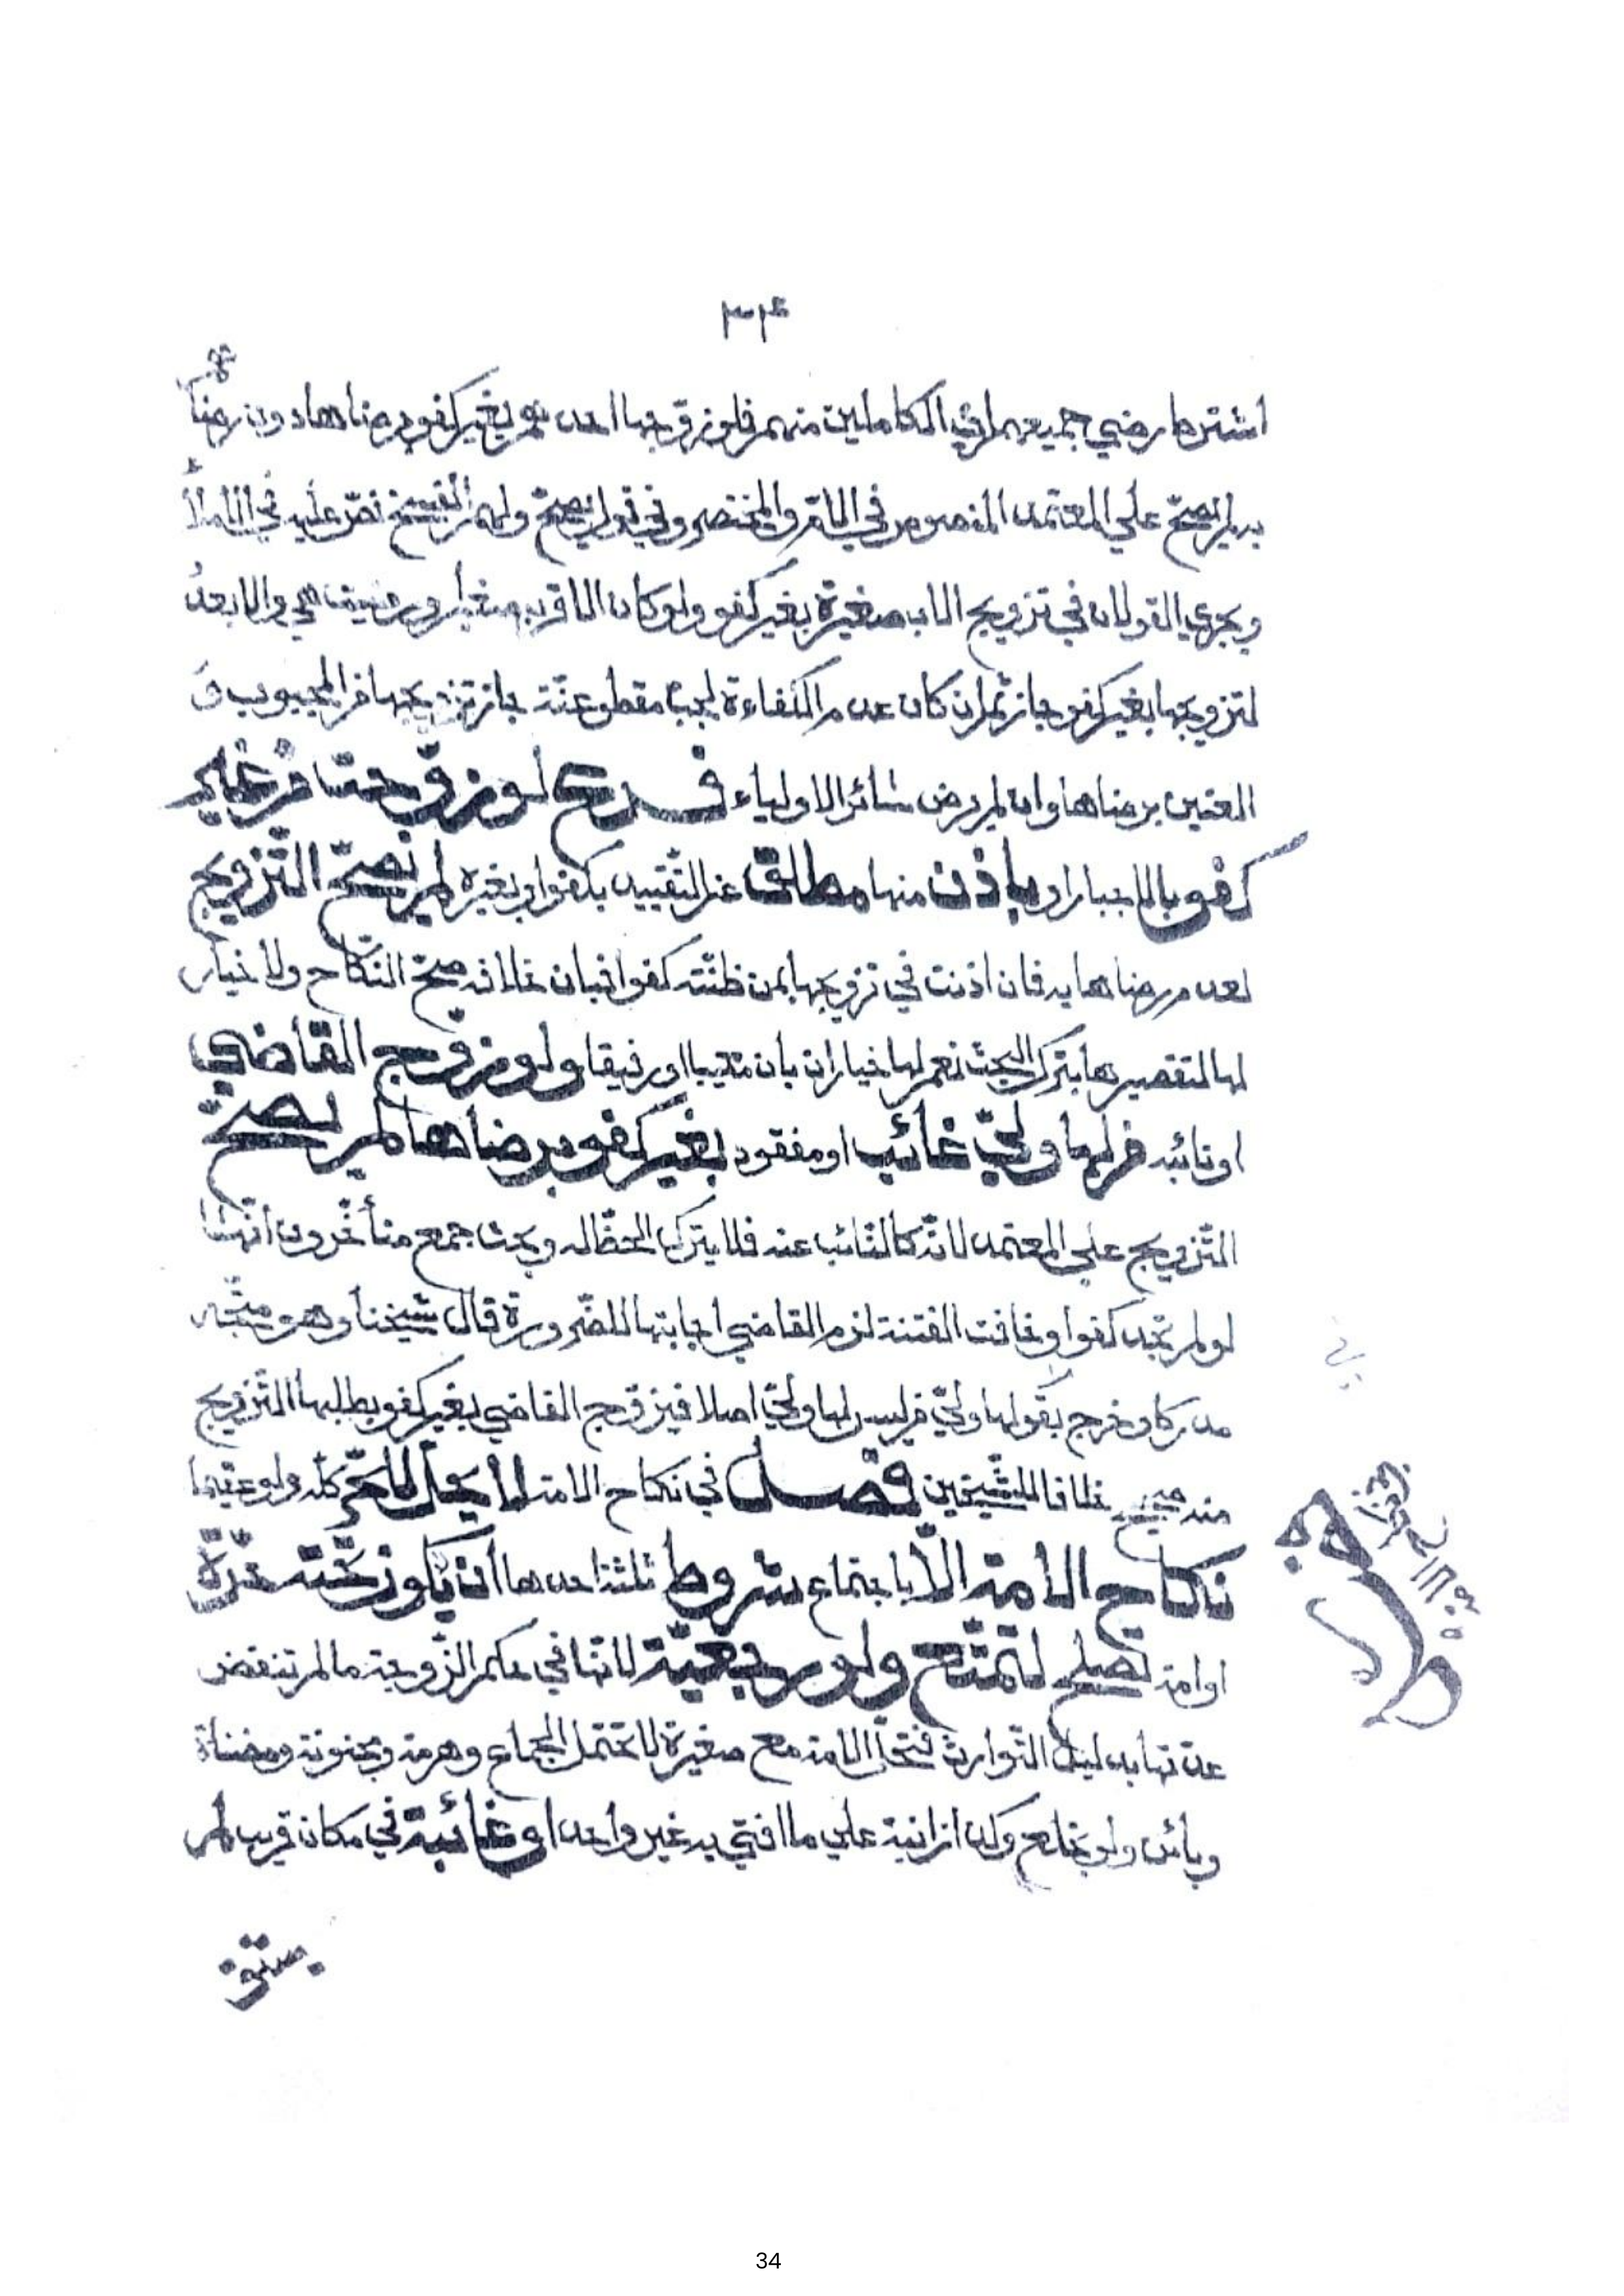 ٣٣٤
اشترط رضي جميعهم اي الكاملين منهم فلو زوجها احدهم بغير كفو برضاها دون رضا
به لم يصحّ علي المعتمد المنصوص في الامّ والمختصر وفي قول يصحّ ولهم الفسخ نصّ عليه في الاملا
ويجري القولان في تزويج الاب صغيرة بغير كفو ولو كان الاقرب صغيرا ورضيت هي والابعد
لتزويجها بغير كفو جاز ثم ان كان عدم الكفاءة لجبّ مقطوعنّة جاز تزويجها من المجبوب و
العنين برضاها وان لم يرض سائر الاولياء فرع لو زوّجت من غير
كفو بالاجبار او باذن منها مطلق عن التّقييد بكفوا وبغيره لم يصحّ التّزويج
لعدم رضاها به فان اذنت في تزويجها بمن ظنّته كفوا فبان خلافه صحّ النكاح ولا خيار
لها لتقصيرها بترك البحث نعم لها خيار ان بان معيبا او رقيقا ولو زوّج القاضي
او نائبه من لها وليّ غائب او مفقود بغير كفو برضاها لم يصحّ
التّزويج علي المعتمد لانّه كالنّائب عنه فلا يترك الحظّ له وبحث جمع متأخّرون انّها
لو لم تجد كفوا وخافت الفتنة لزم القاضي اجابتها للضّرورة قال شيخنا وهو متّجه
مدركا وخرج بقولها وليّ من ليس لها وليّ اصلا فيزوّج القاضي بغير كفو بطلبها التّزويج
منه صحيح خلافا للشّيخين فصل في نكاح الامة لا يحلّ للحرّ كلّه ولو عقيما
نكاح الامة الّا باجتماع شروط ثلثة احدها ان يكون تحته حرّة
او امة تصلح لتمتّع ولو رجعيّة لانّها في حكم الزّوجة ما لم تنقض
عدّتها بدليل التّوارث فتحلّ الامة مع صغيرة لا تحتمل الجماع وهرمة ومجنونة ومضناة
وبائن ولو بخلع وكذا زانية علي ما افتي به غير واحد او غائبة في مكان قريب لم